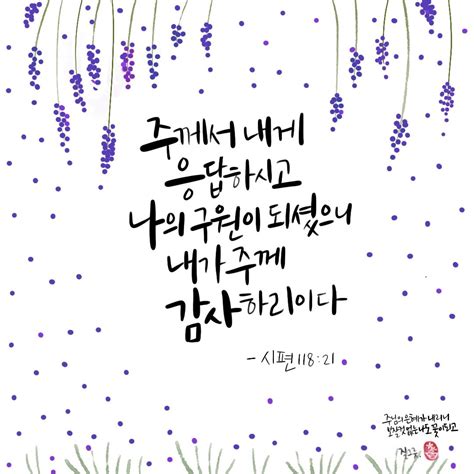 주께서 내게
응답하시고
나의 구원이 되셨으니
내가 주께
감사하리이다
- 시편 118:21
주님의 은혜가 내리니
보잘것없는 나도 꽃이 되고